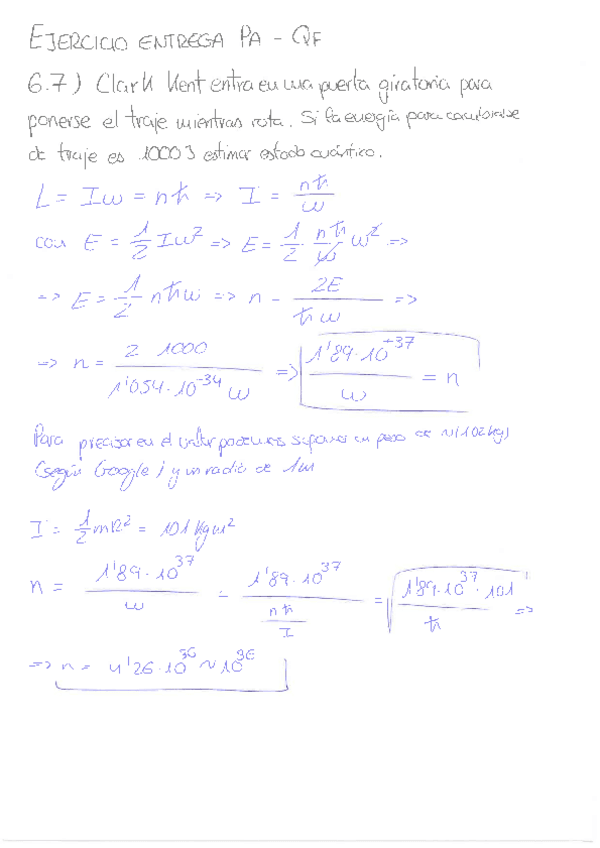 EJERCICIO ENTREGA PA - QF
6.7) Clark Kent entra en una puerta giratoria para
ponerse el traje mientras rota. Si la energía para cambiarse
de traje es 1000J estimar estado cuántico.
L = Iω = nħ => I = nħ/ω
con E = 1/2 Iω² => E = 1/2 · nħ/ω ω² =>
=> E = 1/2 nħω => n = 2E/ħω =>
=> n = 2 1000/1'054·10^-34 ω => 1'89·10^+37/ω = n
Para precisar en el valor podemos suponer un peso de ~(102kg)
(según Google) y un radio de 1m
I = 1/2 mR² = 101 kgm²
n = 1'89·10^37/ω = 1'89·10^37/(nħ/I) = √(1'89·10^37·101/ħ) =>
=> n = 4'26·10^36 ~ 10^36